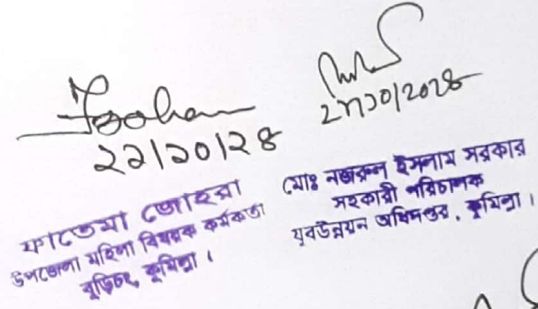 ২২/১০/২৪
ফাতেমা জোহরা
উপজেলা মহিলা বিষয়ক কর্মকর্তা
বুড়িচং, কুমিল্লা।
২২/১০/২০২৪
মোঃ নজরুল ইসলাম সরকার
সহকারী পরিচালক
যুবউন্নয়ন অধিদপ্তর, কুমিল্লা।